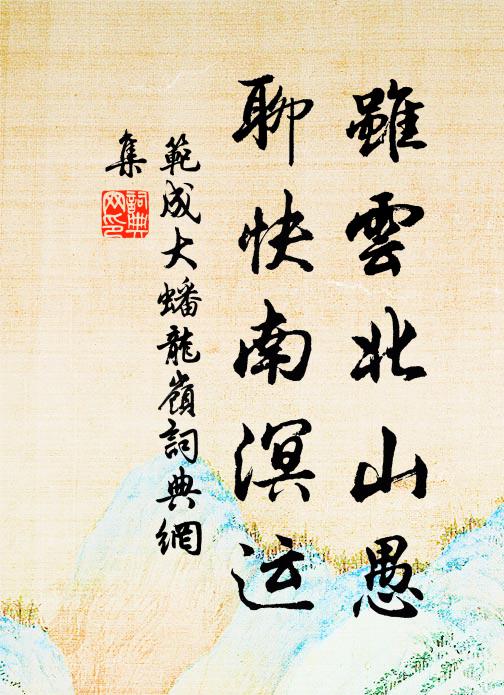 雖雲北山愚
聊快南溟运
範成大蟠龍嶺詞典網
集
詞典
网印